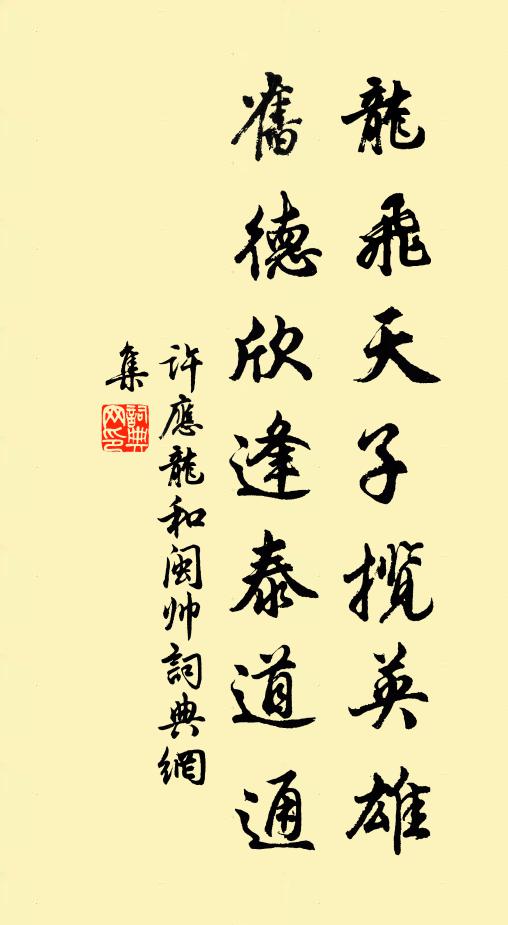 龍飛天子揽英雄
舊德欣逢泰道通
許應龍和閩帅詞典網
集
詞典
网印